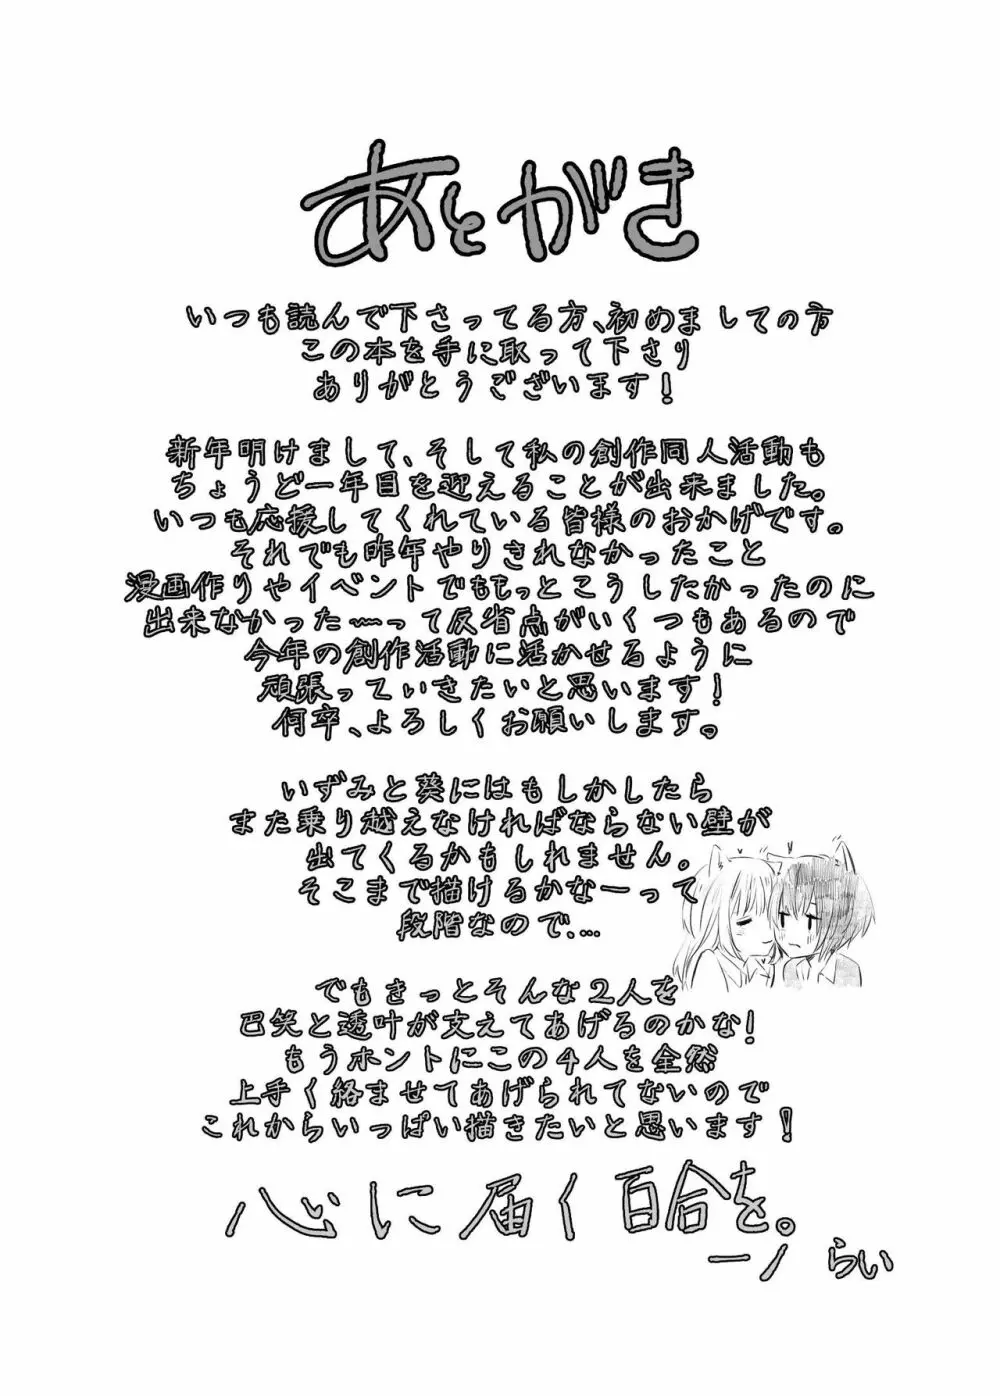 あとがき
いつも読んで下さってる方、初めましての方
この本を手に取って下さり
ありがとうございます!
新年明けまして、そして私の創作同人活動も
ちょうど一年目を迎えることが出来ました。
いつも応援してくれている皆様のおかげです。
それでも昨年やりきれなかったこと
漫画作りやイベントでももっとこうしたかったのに
出来なかった〜〜って反省点がいくつもあるので
今年の創作活動に活かせるように
頑張っていきたいと思います!
何卒、よろしくお願いします。
いずみと葵にはもしかしたら
また乗り越えなければならない壁が
出てくるかもしれません。
そこまで描けるかなーって
段階なので、…
でもきっとそんな2人を
巴笑と透叶が支えてあげるのかな!
もうホントにこの4人を全然
上手く絡ませてあげられてないので
これからいっぱい描きたいと思います!
心に届く百合を。
一ノ らい